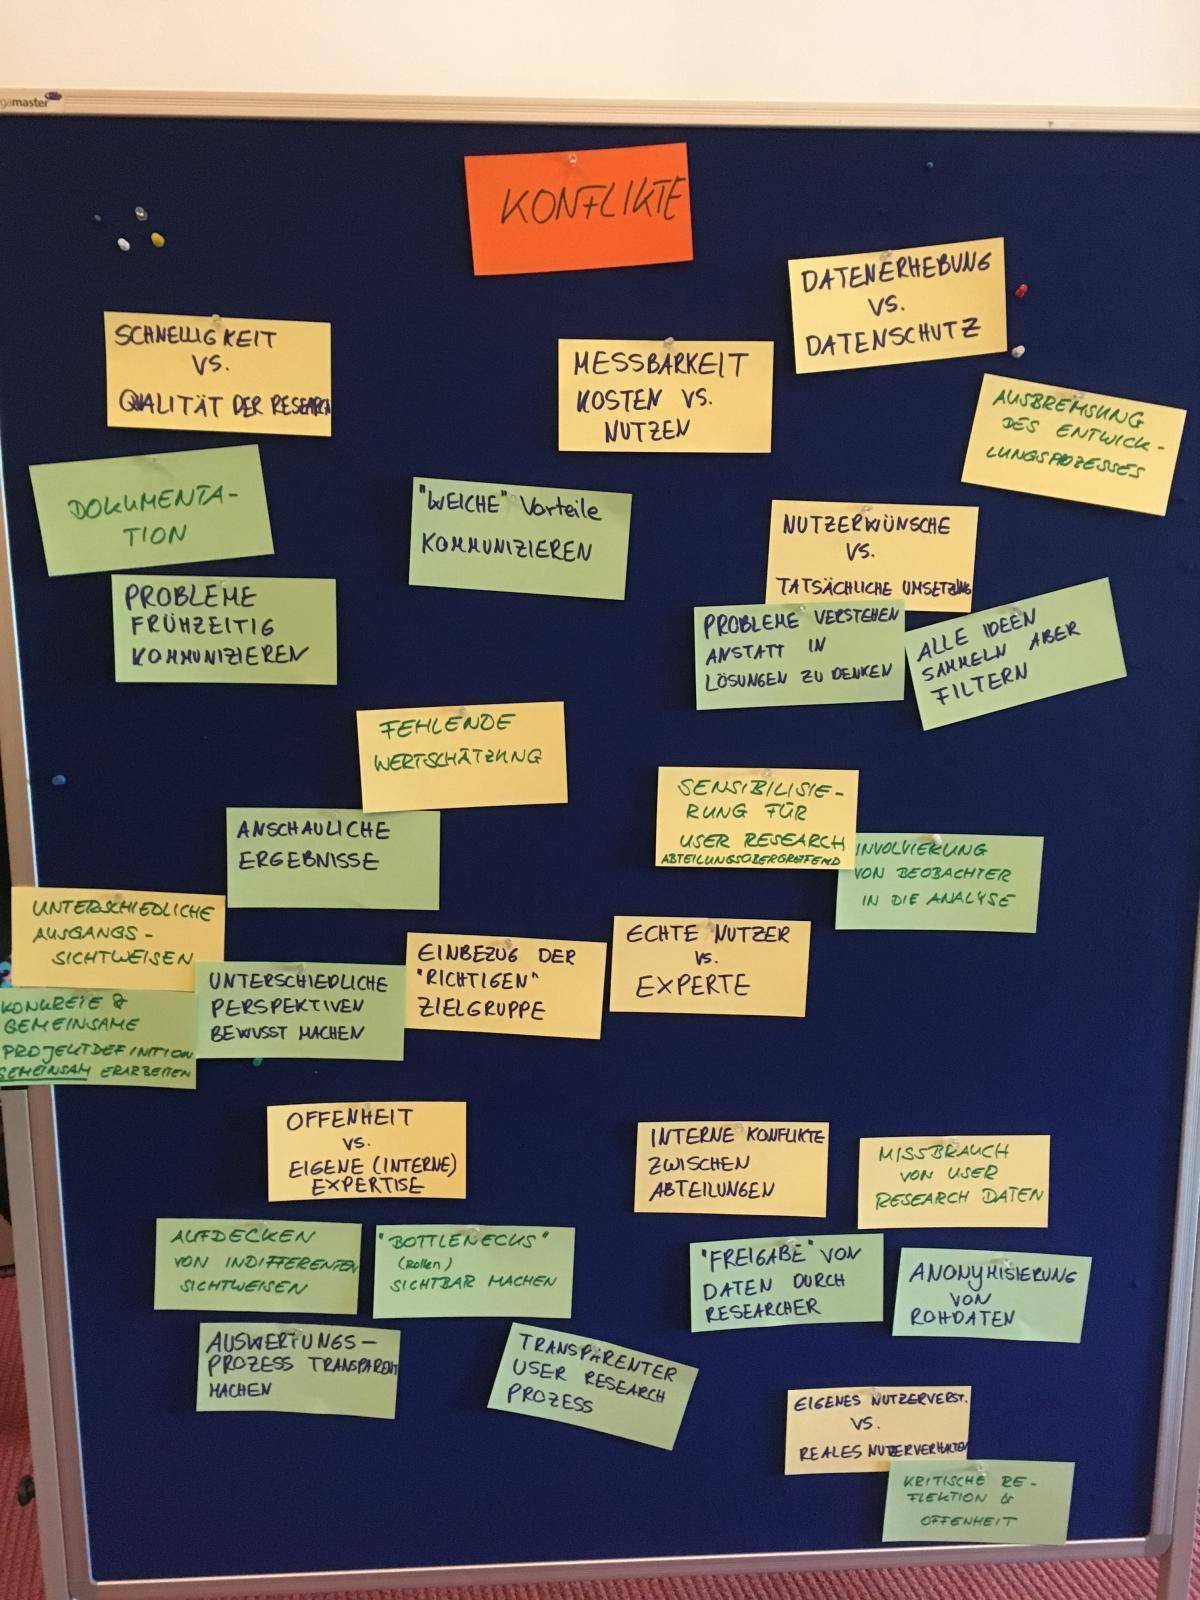 master
KONFLIKTE
DATENERHEBUNG
VS.
DATENSCHUTZ
SCHNELLIGKEIT
VS.
QUALITÄT DER RESEARCH
MESSBARKEIT
KOSTEN VS.
NUTZEN
AUSBREMSUNG
DES ENTWICK-
LUNGSPROZESSES
DOKUMENTA-
TION
"WEICHE" Vorteile
KOMMUNIZIEREN
NUTZERWÜNSCHE
VS.
TATSÄCHLICHE UMSETZUNG
PROBLEME
FRÜHZEITIG
KOMMUNIZIEREN
PROBLEME VERSTEHEN
ANSTATT IN
LÖSUNGEN ZU DENKEN
ALLE IDEEN
SAMMELN ABER
FILTERN
FEHLENDE
WERTSCHÄTZUNG
ANSCHAULICHE
ERGEBNISSE
SENSIBILISIE-
RUNG FÜR
USER RESEARCH
ABTEILUNGSÜBERGREIFEND
INVOLVIERUNG
VON BEOBACHTER
IN DIE ANALYSE
UNTERSCHIEDLICHE
AUSGANGS-
SICHTWEISEN
KONKRETE &
GEMEINSAME
PROJEKTDEFINITION
GEMEINSAM ERARBEITEN
UNTERSCHIEDLICHE
PERSPEKTIVEN
BEWUSST MACHEN
EINBEZUG DER
"RICHTIGEN"
ZIELGRUPPE
ECHTE NUTZER
vs.
EXPERTE
OFFENHEIT
VS.
EIGENE (INTERNE)
EXPERTISE
INTERNE KONFLIKTE
ZWISCHEN
ABTEILUNGEN
MISSBRAUCH
VON USER
RESEARCH DATEN
AUFDECKEN
VON INDIFFERENTEN
SICHTWEISEN
"BOTTLENECKS"
(Rollen)
SICHTBAR MACHEN
"FREIGABE" VON
DATEN DURCH
RESEARCHER
ANONYMISIERUNG
VON
ROHDATEN
AUSWERTUNGS-
PROZESS TRANSPARENT
MACHEN
TRANSPARENTER
USER RESEARCH
PROZESS
EIGENES NUTZERVERST.
VS.
REALES NUTZERVERHALTEN
KRITISCHE RE-
FLEKTION &
OFFENHEIT